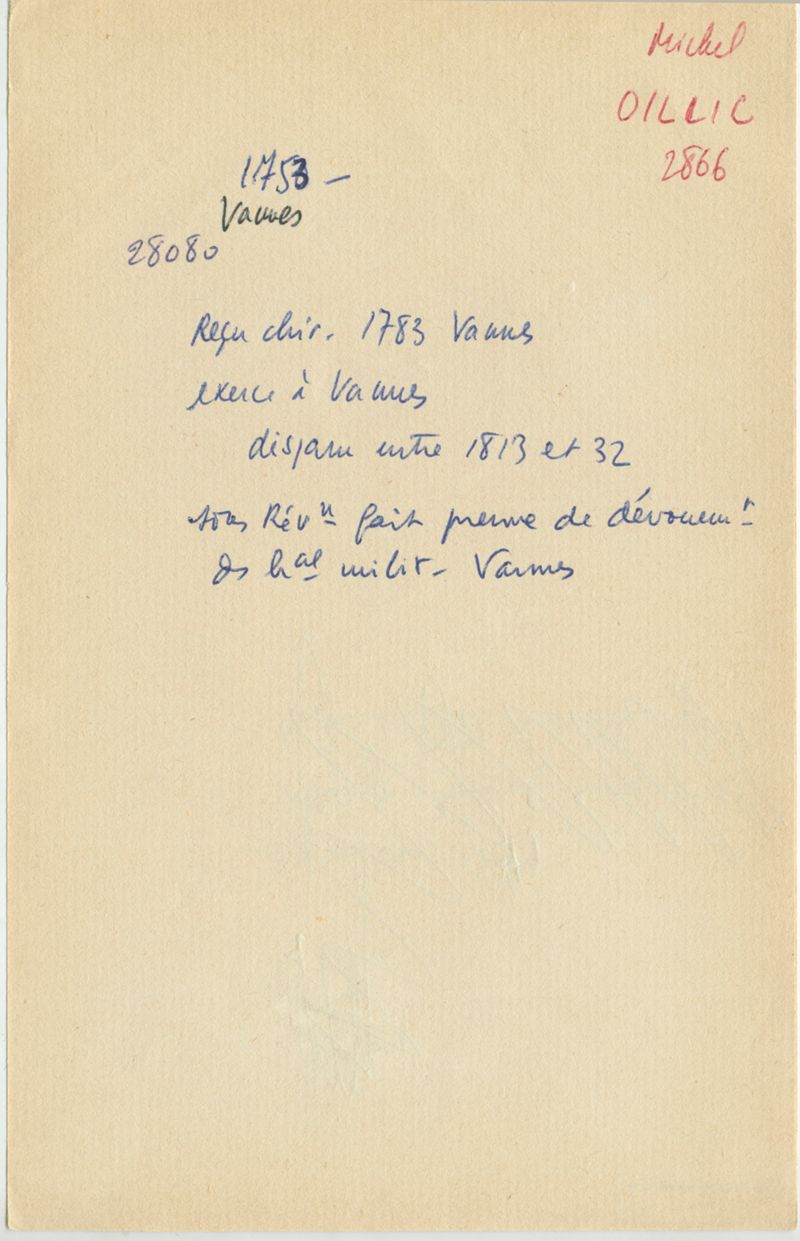 Michel
OILLIC
2866
1753 –
Vannes
28080
Reçu chir. 1783 Vannes
exerce à Vannes
disparu entre 1813 et 32
sous Révn fait preuve de dévouemt
ds hal milit. Vannes